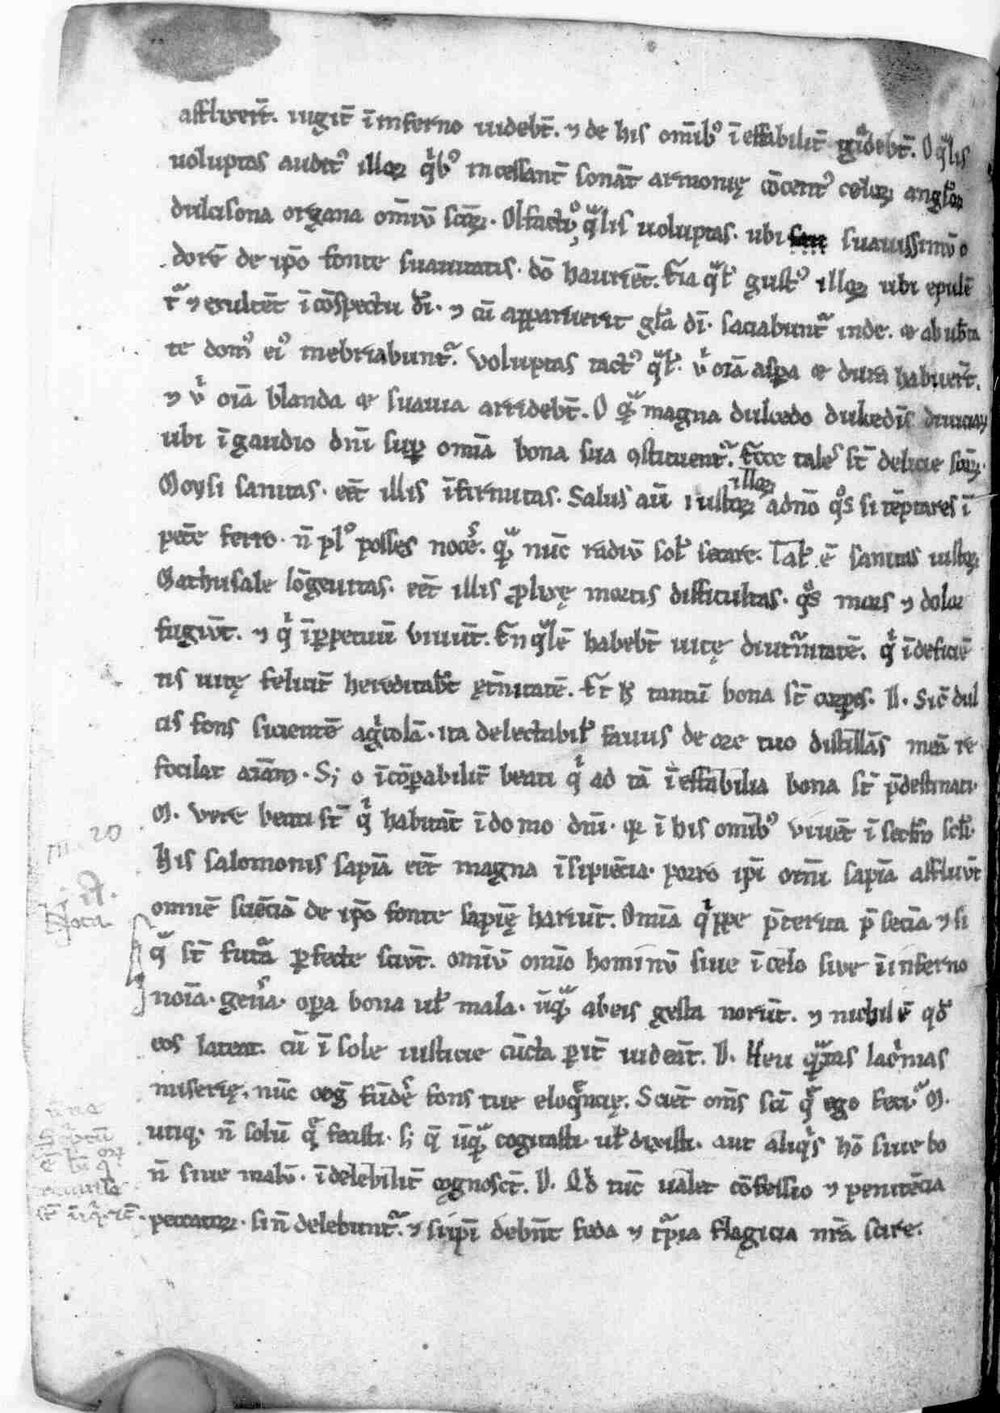 afflixerī̄t. iugit̄ ī inferno uidebt̄. ⁊ de his om̄ibꝰ ī effabilit̄ gͣudebt̄. O qͣlis
uoluptas auditꝰ illoꝝ qͥbꝰ incessant̄ sonāt armonię cōcentꝰ celoꝝ anglͦoꝝ
dulcisona organa om̄iū sc̄oꝝ. Olfactꝰ qͣlis uoluptas. ubi suauissimū o
dorē de ip̄o fonte suauitatis. dō hauriēt. Et̄ia qͣlꝭ gustꝰ illoꝝ ubi epulē
tͣ ⁊ exultēt ī cōspectu dī. ⁊ cū apparuerit glͣa dī. saciabuntͣ inde. et ab ub̄ta
te domꝰ eiꝰ inebriabuntͣ. Voluptas tactꝰ qͣlꝭ. uͥ oīa aspa et dura habuerī̄t.
⁊ uͥ oīa blanda et suauia arridebt̄. O qͣ magna dulcedo dulcedīs diuiciaꝝ
ubi ī gaudio dnī suꝑ omīa bona sua ꝯstituentͣ. Ecce tales st̄ delicie sc̄oꝝ.
illoꝝ
Moysi sanitas. eēt illis īfirmitas. Salus aū iustoꝝ a dn̄o qͦs si tēptares ī
petē ferro. n̄ plꝰ posses nocē. qͣ nūc radiū solꝭ secare. Talꝭ ē sanitas iustoꝝ
Mathusale lōgeuitas. eēt illis ꝓlixę mortis difficultas. qͦs mors ⁊ dolor
fugiūt. ⁊ qͥ īꝑpetuū viuūt. En qͣlē habebt̄ uitę diuturnitatē. qͥ īdeficiē
tis uitę felicit̄ hereditabt̄ et̄nitatē. Et hͦ tantū bona st̄ corꝑis. D. Sic̄ dul
cis fons sicientē agͥcolā. ita delectabilꝭ fauus de ore tuo distillās meā re
focilat aīam. S; o īcōparabilit̄ beati qͥ ad tā īeffabilia bona st̄ p̄destinati.
M. Vere beati st̄ qͥ habitāt ī domo dnī. qꝛ ī his om̄ibꝰ viuēt ī secl̄m scl̄i.
His salomonis sapīa eēt magna īsipiēcia. porro ipī omī sapīa affluūt
omnē sciēciā de ip̄o fonte sapię hauriūt. Omīa qͥppe p̄terita p̄sēcia ⁊ si
qͣ st̄ futͣa ꝑfecte sciūt. omiū omīo hominū siue ī celo siue ī inferno
noīa. genͣa. oꝑa bona ul̄ mala. ūqͣ ab eis gesta norūt. ⁊ nichil ē qd̄
eos lateat. cū ī sole iusticie cūcta parit̄ uideāt. D. Heu qͣntas lacͥmas
miserię. nūc cog̅ fūdē fons tue eloqͣncię. Sciēt om̄s scī qͣ ego feci. M.
utiqꝫ. n̄ solū qͣ fecisti. s; q̄ ūqͣ cogitasti. ul̄ dixisti. aut aliqͥs hō siue bo
n̄ siue malū. īdelebilit̄ cognoscēt. D. Qd̄ tūc ualet cōfessio ⁊ penitēcia
peccatoꝝ. si n̄ delebuntͣ. ⁊ si ipī debn̄t feda ⁊ tͥpia flagicia nr̄a scire.
Nota